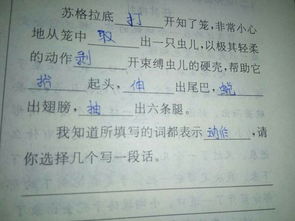 苏格拉底 打 开知了笼,非常小心
地从笼中 取 出一只虫儿,以极其轻柔
的动作 剥 开束缚虫儿的硬壳,帮助它
抬 起头, 伸 出尾巴,
出翅膀, 抽 出六条腿。
我知道所填写的词都表示 动作 ,请
你选择几个写一段话。